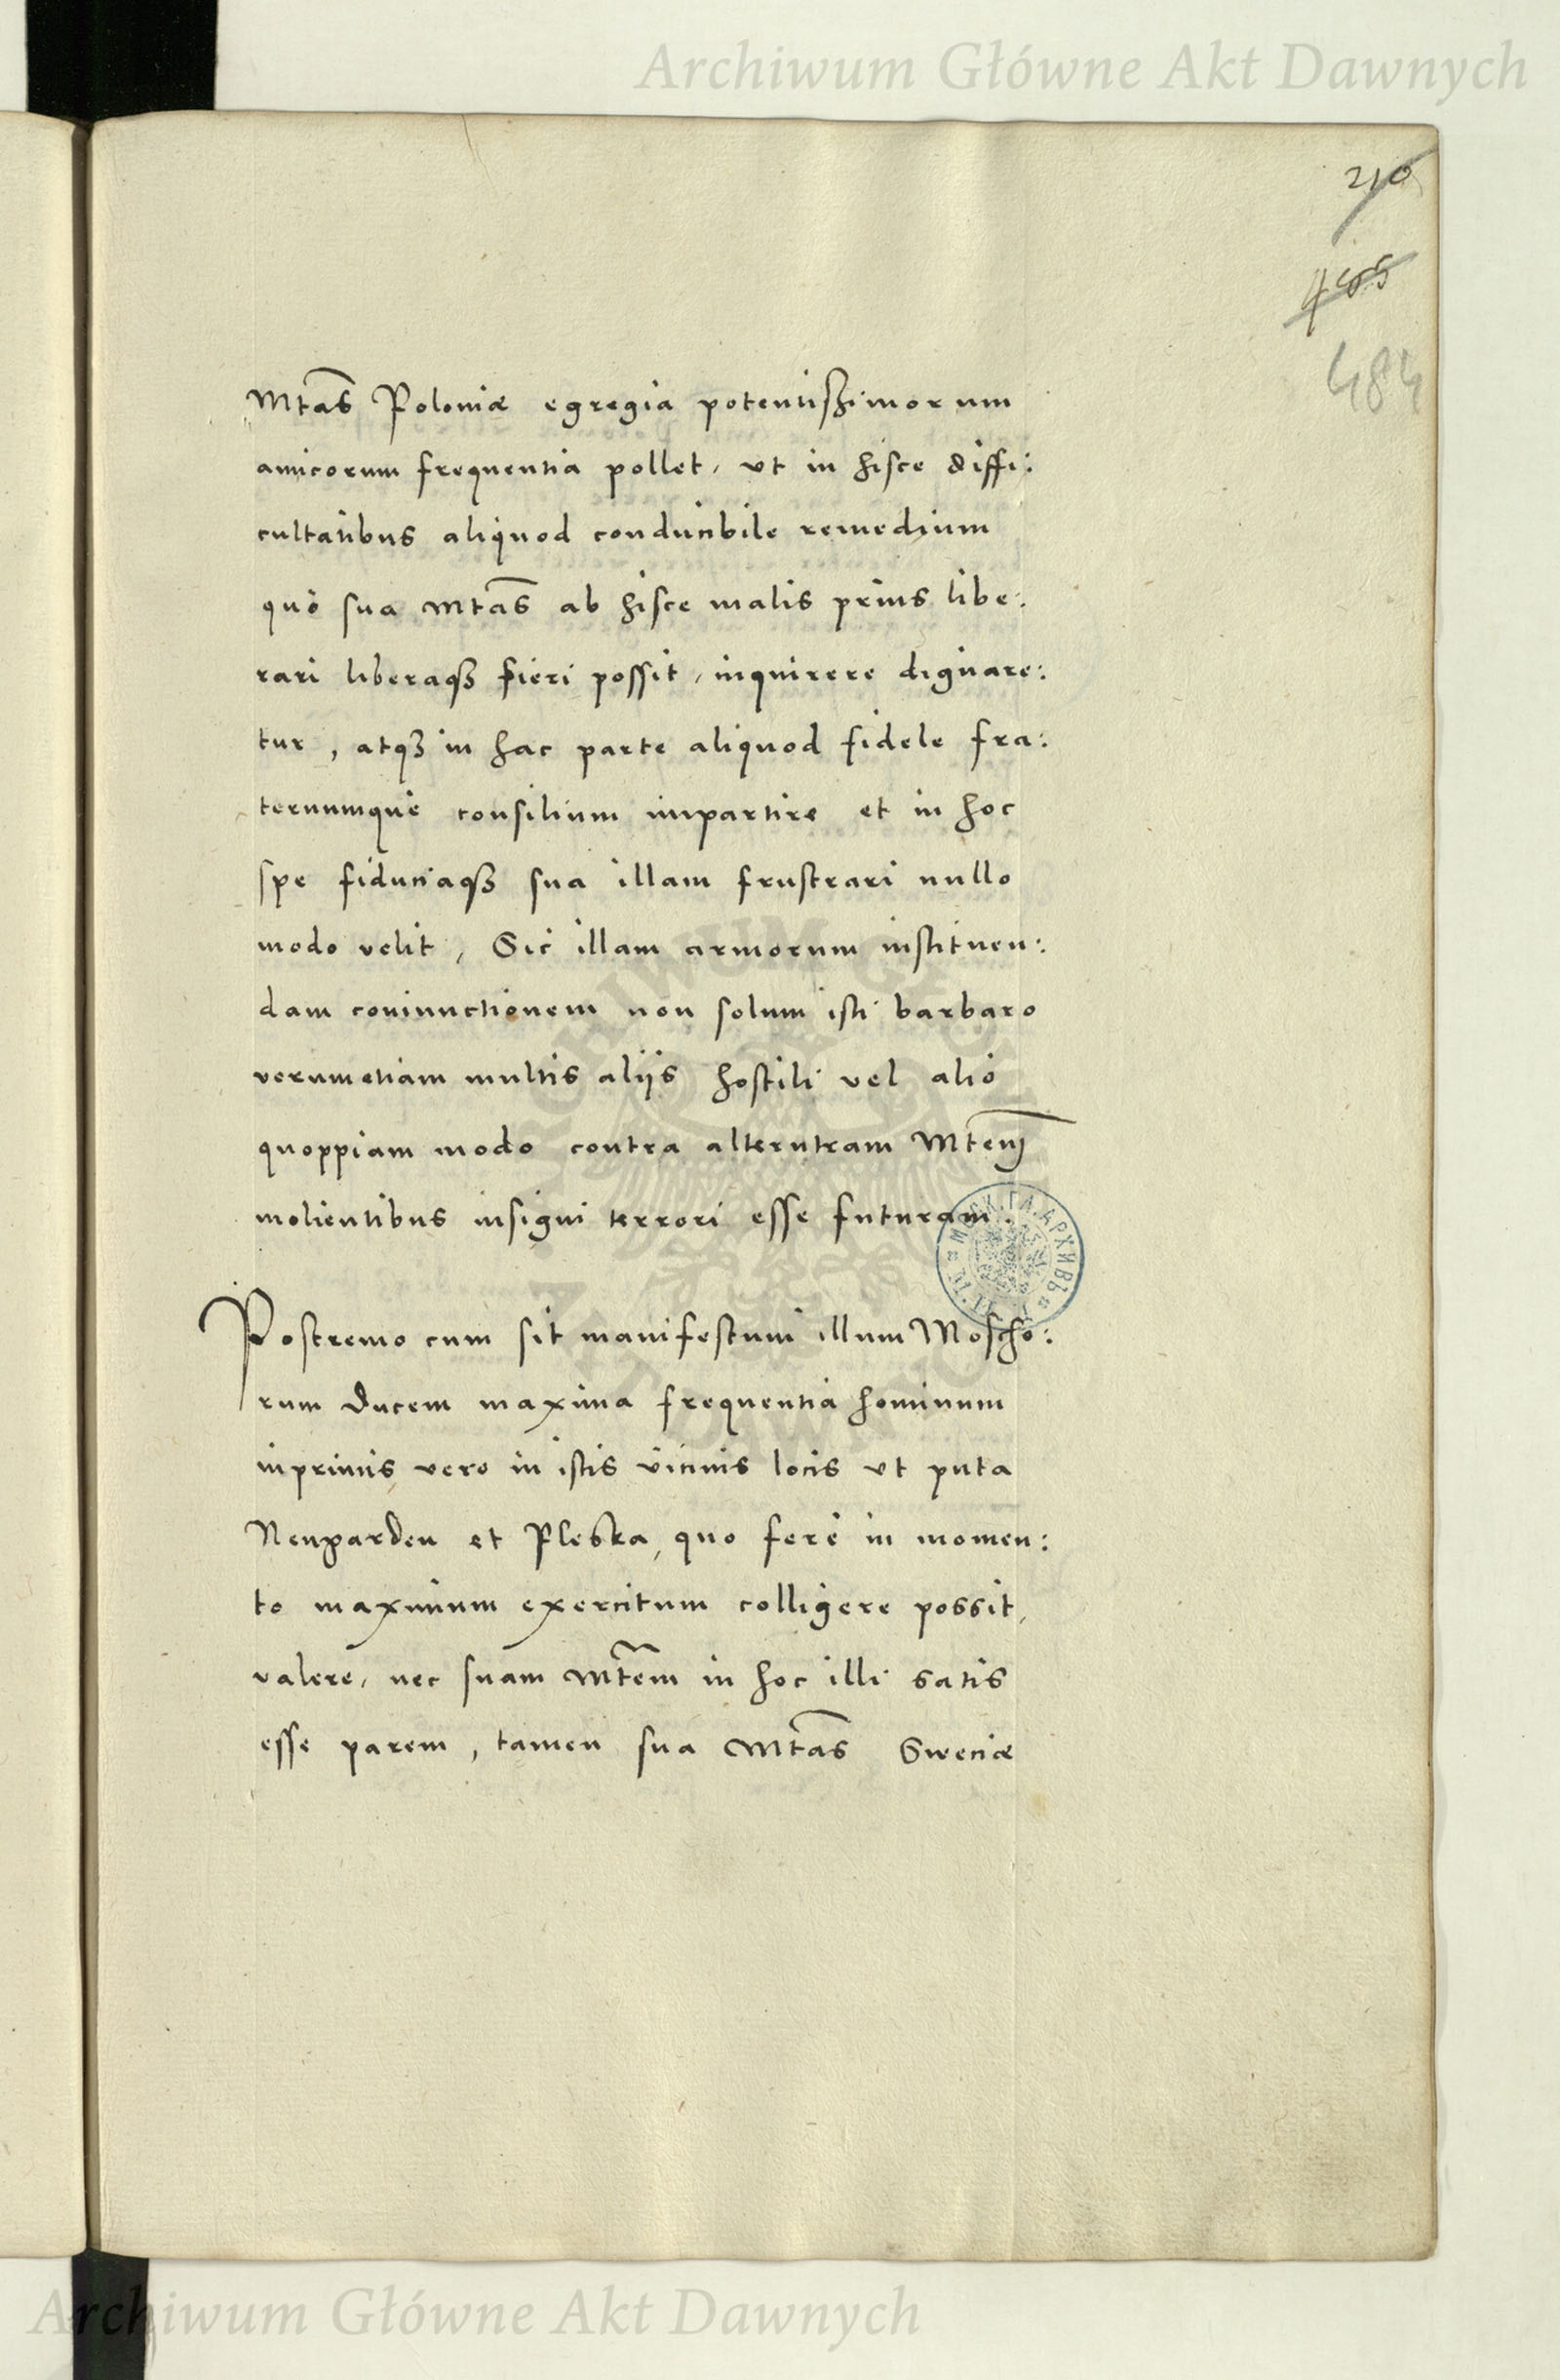 Archiwum Główne Akt Dawnych
210
484
Mtas Poloniæ egregia potentissimorum
amicorum frequentia pollet, vt in hisce diffi:
cultatibus aliquod conducibile remedium
quo sua Mtas ab hisce malis prius libe:
rari liberaqꝫ fieri possit, inquirere dignare:
tur, atqꝫ in hac parte aliquod fidele fra:
ternumque consilium impartire et in hoc
spe fiduciaqꝫ sua illam frustrari nullo
modo velit, Sic illam armorum instituen:
dam coniunctionem non solum isti barbaro
verumetiam multis aliis hostili vel alio
quoppiam modo contra alterutram Mtem
molientibus insigni terrori esse futuram.
Postremo cum sit manifestum illum Moscho:
rum ducem maxima frequentia hominum
inprimis vero in istis vicinis locis vt puta
Neugarden et Pleska, quo ferè in momen:
to maximum exercitum colligere possit,
valere, nec suam Mtem in hoc illi satis
esse parem, tamen sua Mtas Sueciæ
Archiwum Główne Akt Dawnych